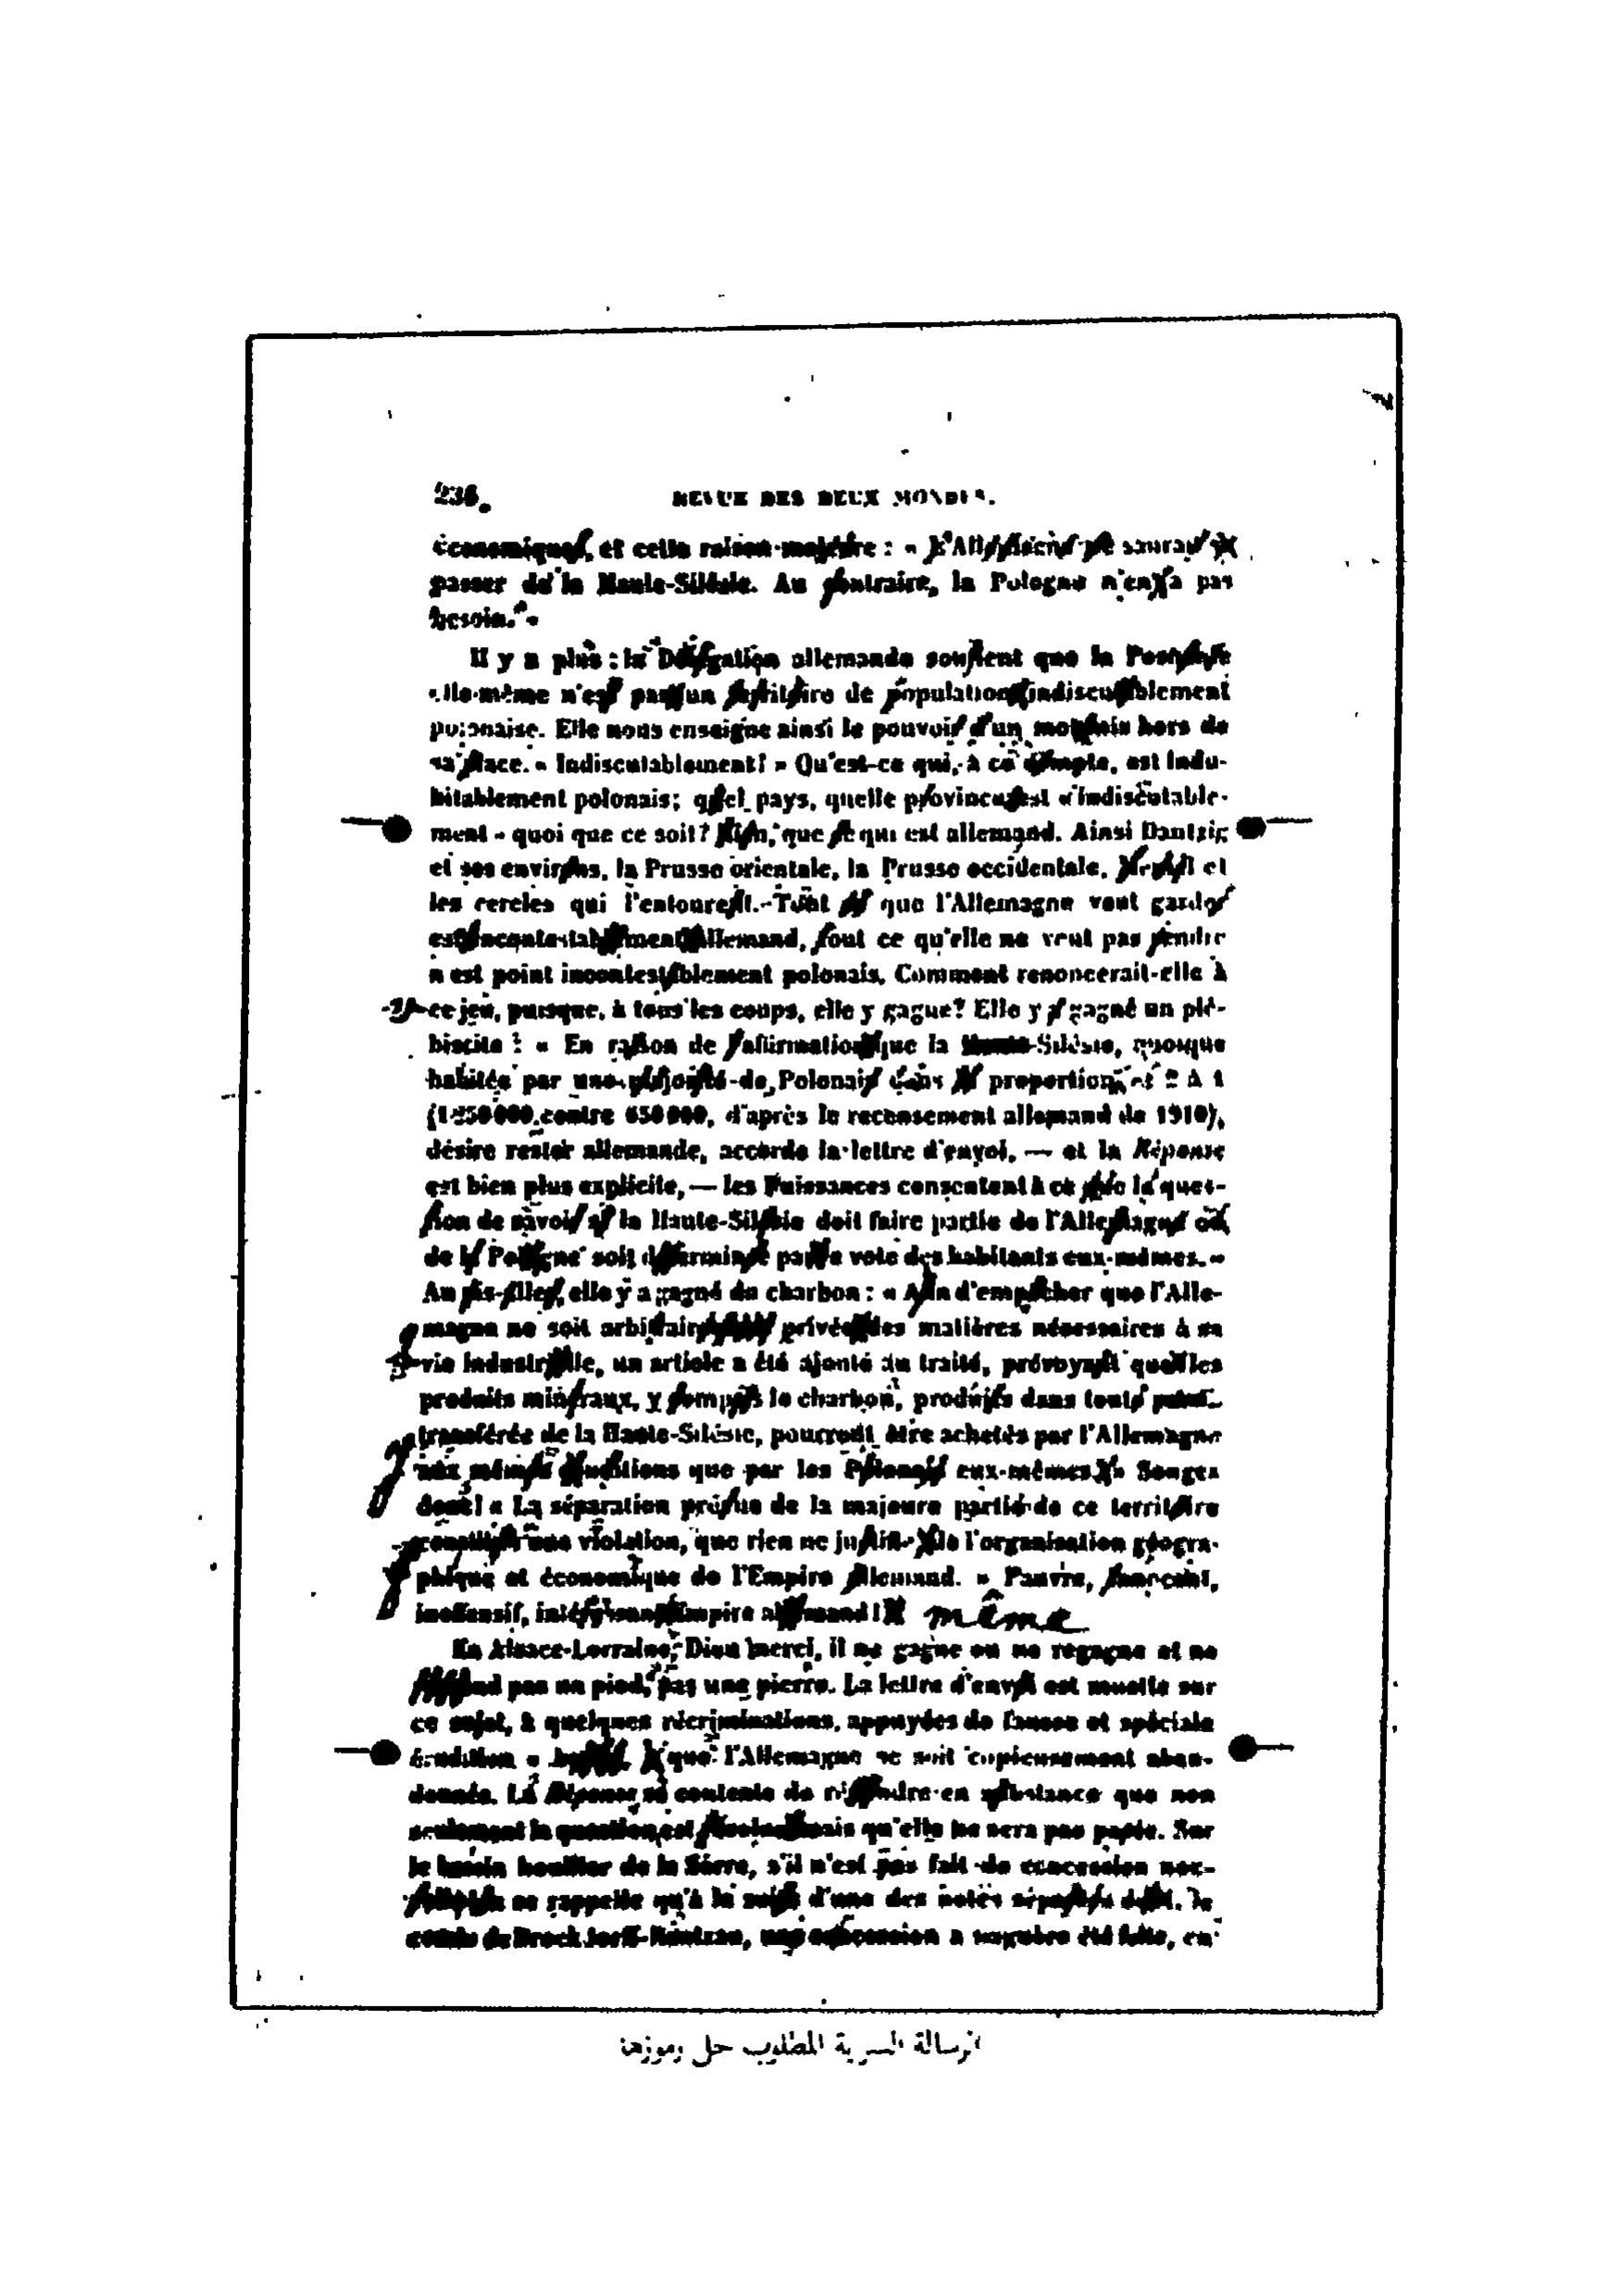 236
REVUE DES DEUX MONDES.
économiques, et cette raison majeure : « L'Allemagne ne saurait se
passer de la Haute-Silésie. Au contraire, la Pologne n'en a pas
besoin. »
Il y a plus : la Délégation allemande soutient que la Posnanie
elle-même n'est pas un territoire de population indiscutablement
polonaise. Elle nous enseigne ainsi le pouvoir d'un mot mis hors de
sa place. « Indiscutablement! » Qu'est-ce qui, à ce compte, est indu-
bitablement polonais; quel pays, quelle province est « indiscutable-
ment » quoi que ce soit? Rien, que ce qui est allemand. Ainsi Dantzig
et ses environs, la Prusse orientale, la Prusse occidentale, Memel et
les cercles qui l'entourent. Tout ce que l'Allemagne veut garder
est incontestablement allemand, tout ce qu'elle ne veut pas rendre
n'est point incontestablement polonais. Comment renoncerait-elle à
ce jeu, puisque, à tous les coups, elle y gagne? Elle y a gagné un plé-
biscite : « En raison de l'affirmation que la Haute-Silésie, quoique
habitée par une majorité de Polonais dans la proportion de 2 à 1
(1 250 000 contre 650 000, d'après le recensement allemand de 1910),
désire rester allemande, accorde la lettre d'envoi, — et la Réponse
est bien plus explicite, — les Puissances consentent à ce que la ques-
tion de savoir si la Haute-Silésie doit faire partie de l'Allemagne ou
de la Pologne soit déterminée par le vote des habitants eux-mêmes. »
Au pis-aller, elle y a gagné du charbon : « Afin d'empêcher que l'Alle-
magne ne soit arbitrairement privée des matières nécessaires à sa
vie industrielle, un article a été ajouté au traité, prévoyant que les
produits minéraux, y compris le charbon, produits dans toute partie
transférée de la Haute-Silésie, pourront être achetés par l'Allemagne
aux mêmes conditions que par les Polonais eux-mêmes. » Songez
donc! « La séparation prévue de la majeure partie de ce territoire
constitue une violation, que rien ne justifie, de l'organisation géogra-
phique et économique de l'Empire allemand. » Pauvre, innocent,
inoffensif, intéressant Empire allemand! même
En Alsace-Lorraine, Dieu merci, il ne gagne ou ne regagne et ne
pas un pied, pas une pierre. La lettre d'envoi est muette sur
ce sujet, à quelques récriminations, appuyées de fausse et spéciale
érudition « que l'Allemagne se soit copieusement aban-
donnée. La Réponse se contente de répondre en substance que non
seulement la question est mais qu'elle ne sera pas posée. Sur
le bassin houiller de la Sarre, s'il n'est pas fait de concession nou-
velle, on se rappelle qu'à la suite d'une des notes du
comte de Brockdorff-Rantzau, une concession a naguère été faite, en
الرسالة السرية المطلوب حل رموزها